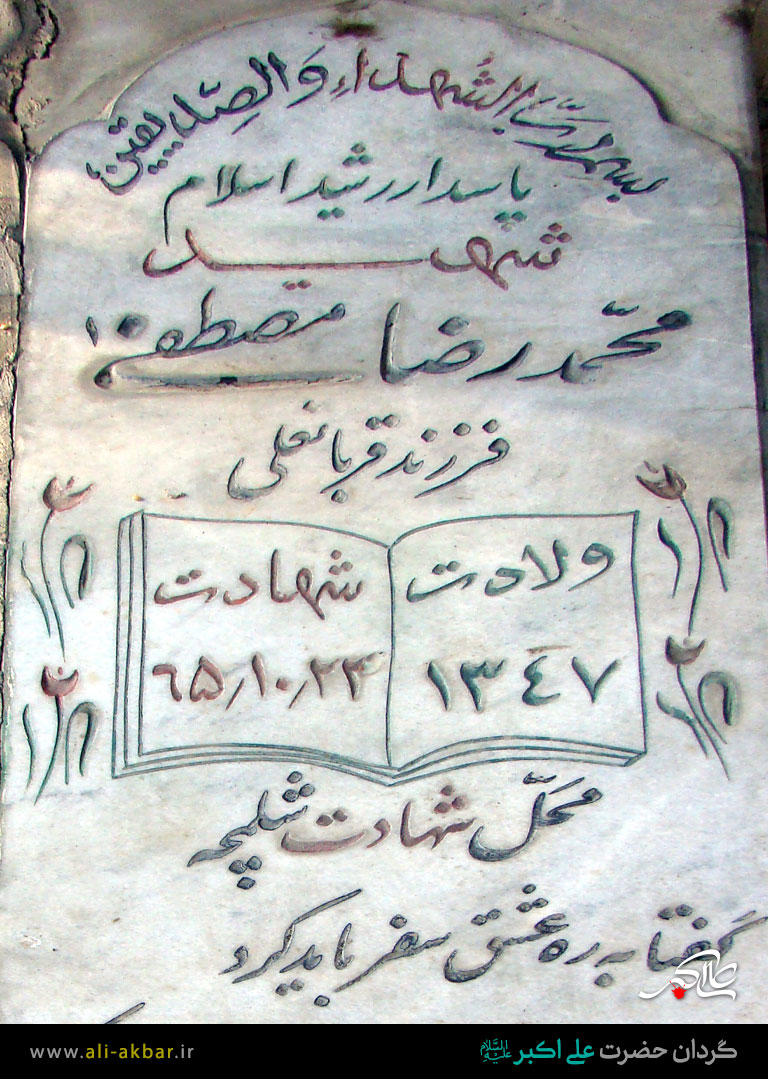 بسم رب الشهداء والصدیقین
پاسدار رشید اسلام
شهید
محمدرضا مصطفی
فرزند قربانعلی
ولادت
۱۳۴۷
شهادت
۶۵٫۱۰٫۲۳
محلّ شهادت شلمچه
گفتا به ره عشق سفر باید کرد
علی اکبر
www.ali-akbar.ir
گردان حضرت علی اکبر علیه السلام